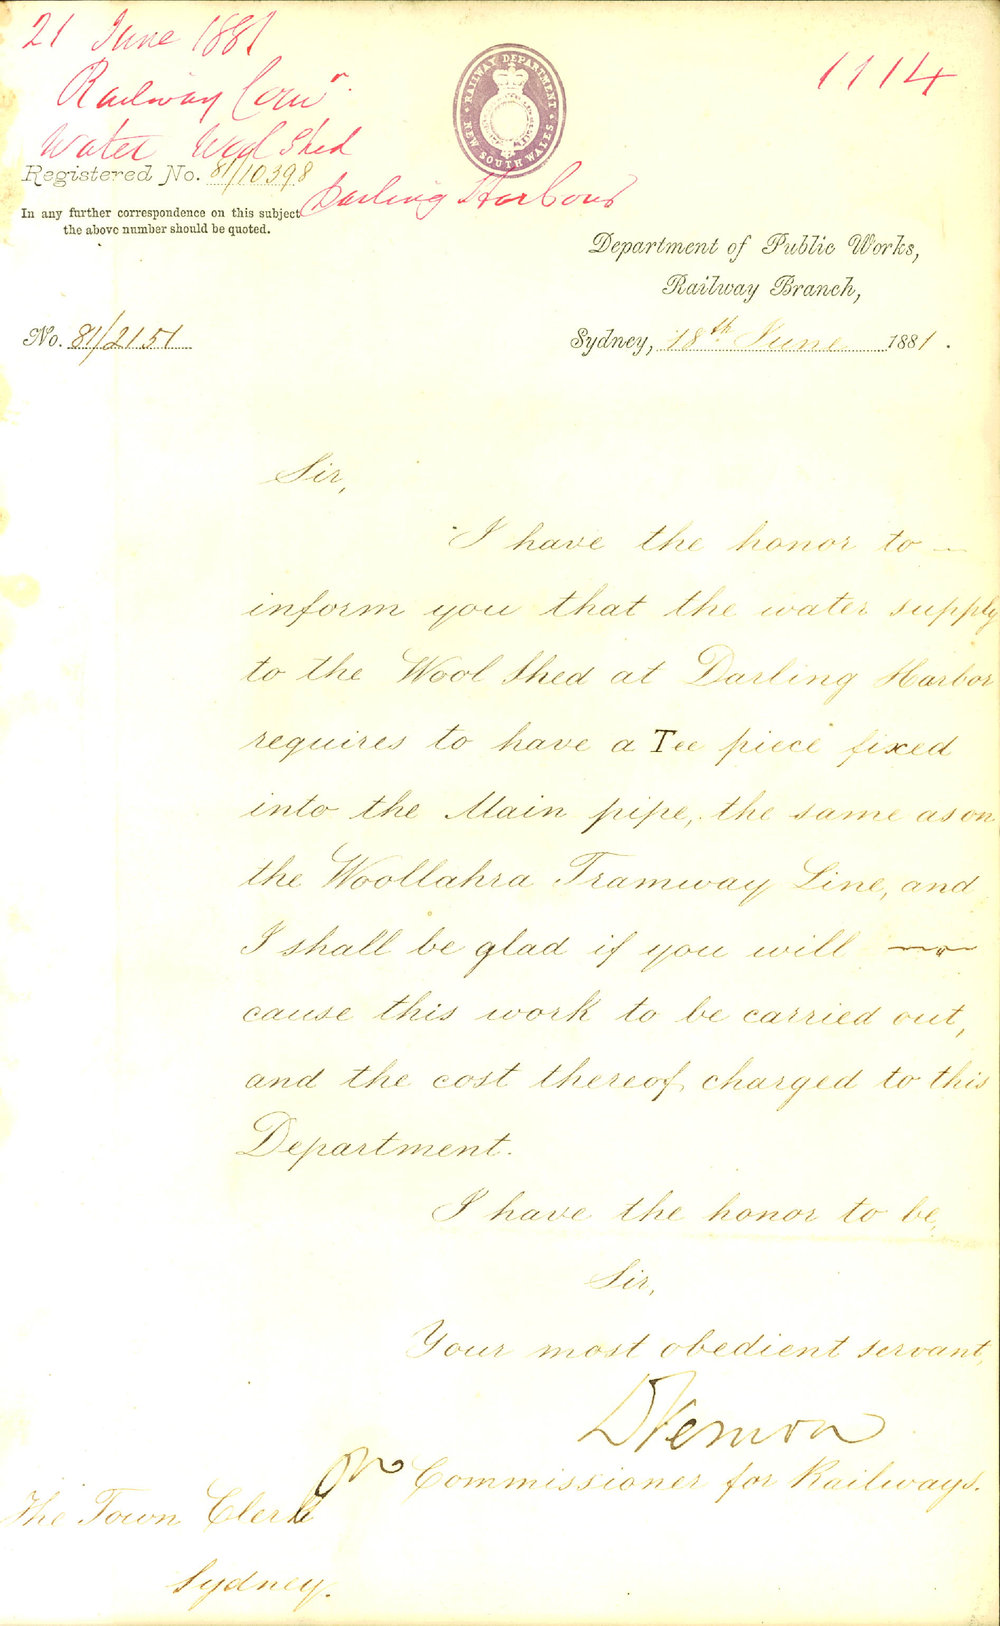 21 June 1881
1114
Railway Comr
Water Wool Shed
Darling Harbour
RAILWAY DEPARTMENT
NEW SOUTH WALES
Registered No. 81/10398
In any further correspondence on this subject
the above number should be quoted.
Department of Public Works,
Railway Branch,
No. 81/2151
Sydney, 18th June 1881.
Sir,
I have the honor to
inform you that the water supply
to the Wool Shed at Darling Harbor
requires to have a Tee piece fixed
into the Main pipe, the same as on
the Woollahra Tramway Line, and
I shall be glad if you will
cause this work to be carried out,
and the cost thereof charged to this
Department.
I have the honor to be,
Sir,
Your most obedient servant,
DVernon
for Commissioner for Railways.
The Town Clerk
Sydney.